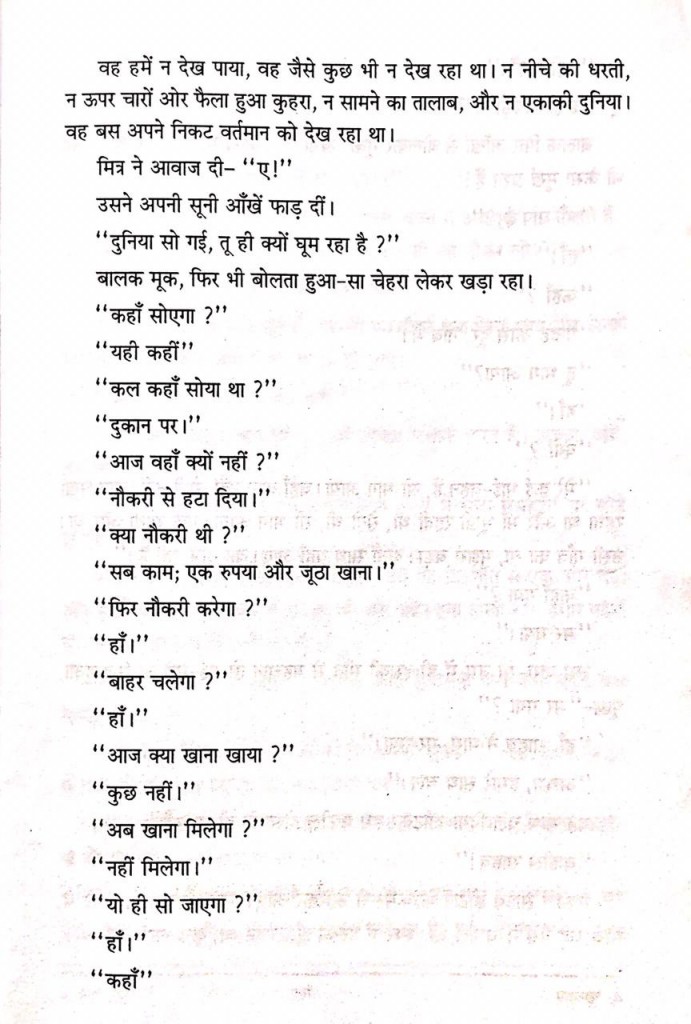 वह हमें न देख पाया, वह जैसे कुछ भी न देख रहा था। न नीचे की धरती,
न ऊपर चारों ओर फैला हुआ कुहरा, न सामने का तालाब, और न एकाकी दुनिया।
वह बस अपने निकट वर्तमान को देख रहा था।
मित्र ने आवाज दी– “ए!”
उसने अपनी सूनी आँखें फाड़ दीं।
“दुनिया सो गई, तू ही क्यों घूम रहा है ?”
बालक मूक, फिर भी बोलता हुआ-सा चेहरा लेकर खड़ा रहा।
“कहाँ सोएगा ?”
“यही कहीं”
“कल कहाँ सोया था ?”
“दुकान पर।”
“आज वहाँ क्यों नहीं ?”
“नौकरी से हटा दिया।”
“क्या नौकरी थी ?”
“सब काम; एक रुपया और जूठा खाना।”
“फिर नौकरी करेगा ?”
“हाँ।”
“बाहर चलेगा ?”
“हाँ।”
“आज क्या खाना खाया ?”
“कुछ नहीं।”
“अब खाना मिलेगा ?”
“नहीं मिलेगा।”
“यो ही सो जाएगा ?”
“हाँ।”
“कहाँ”